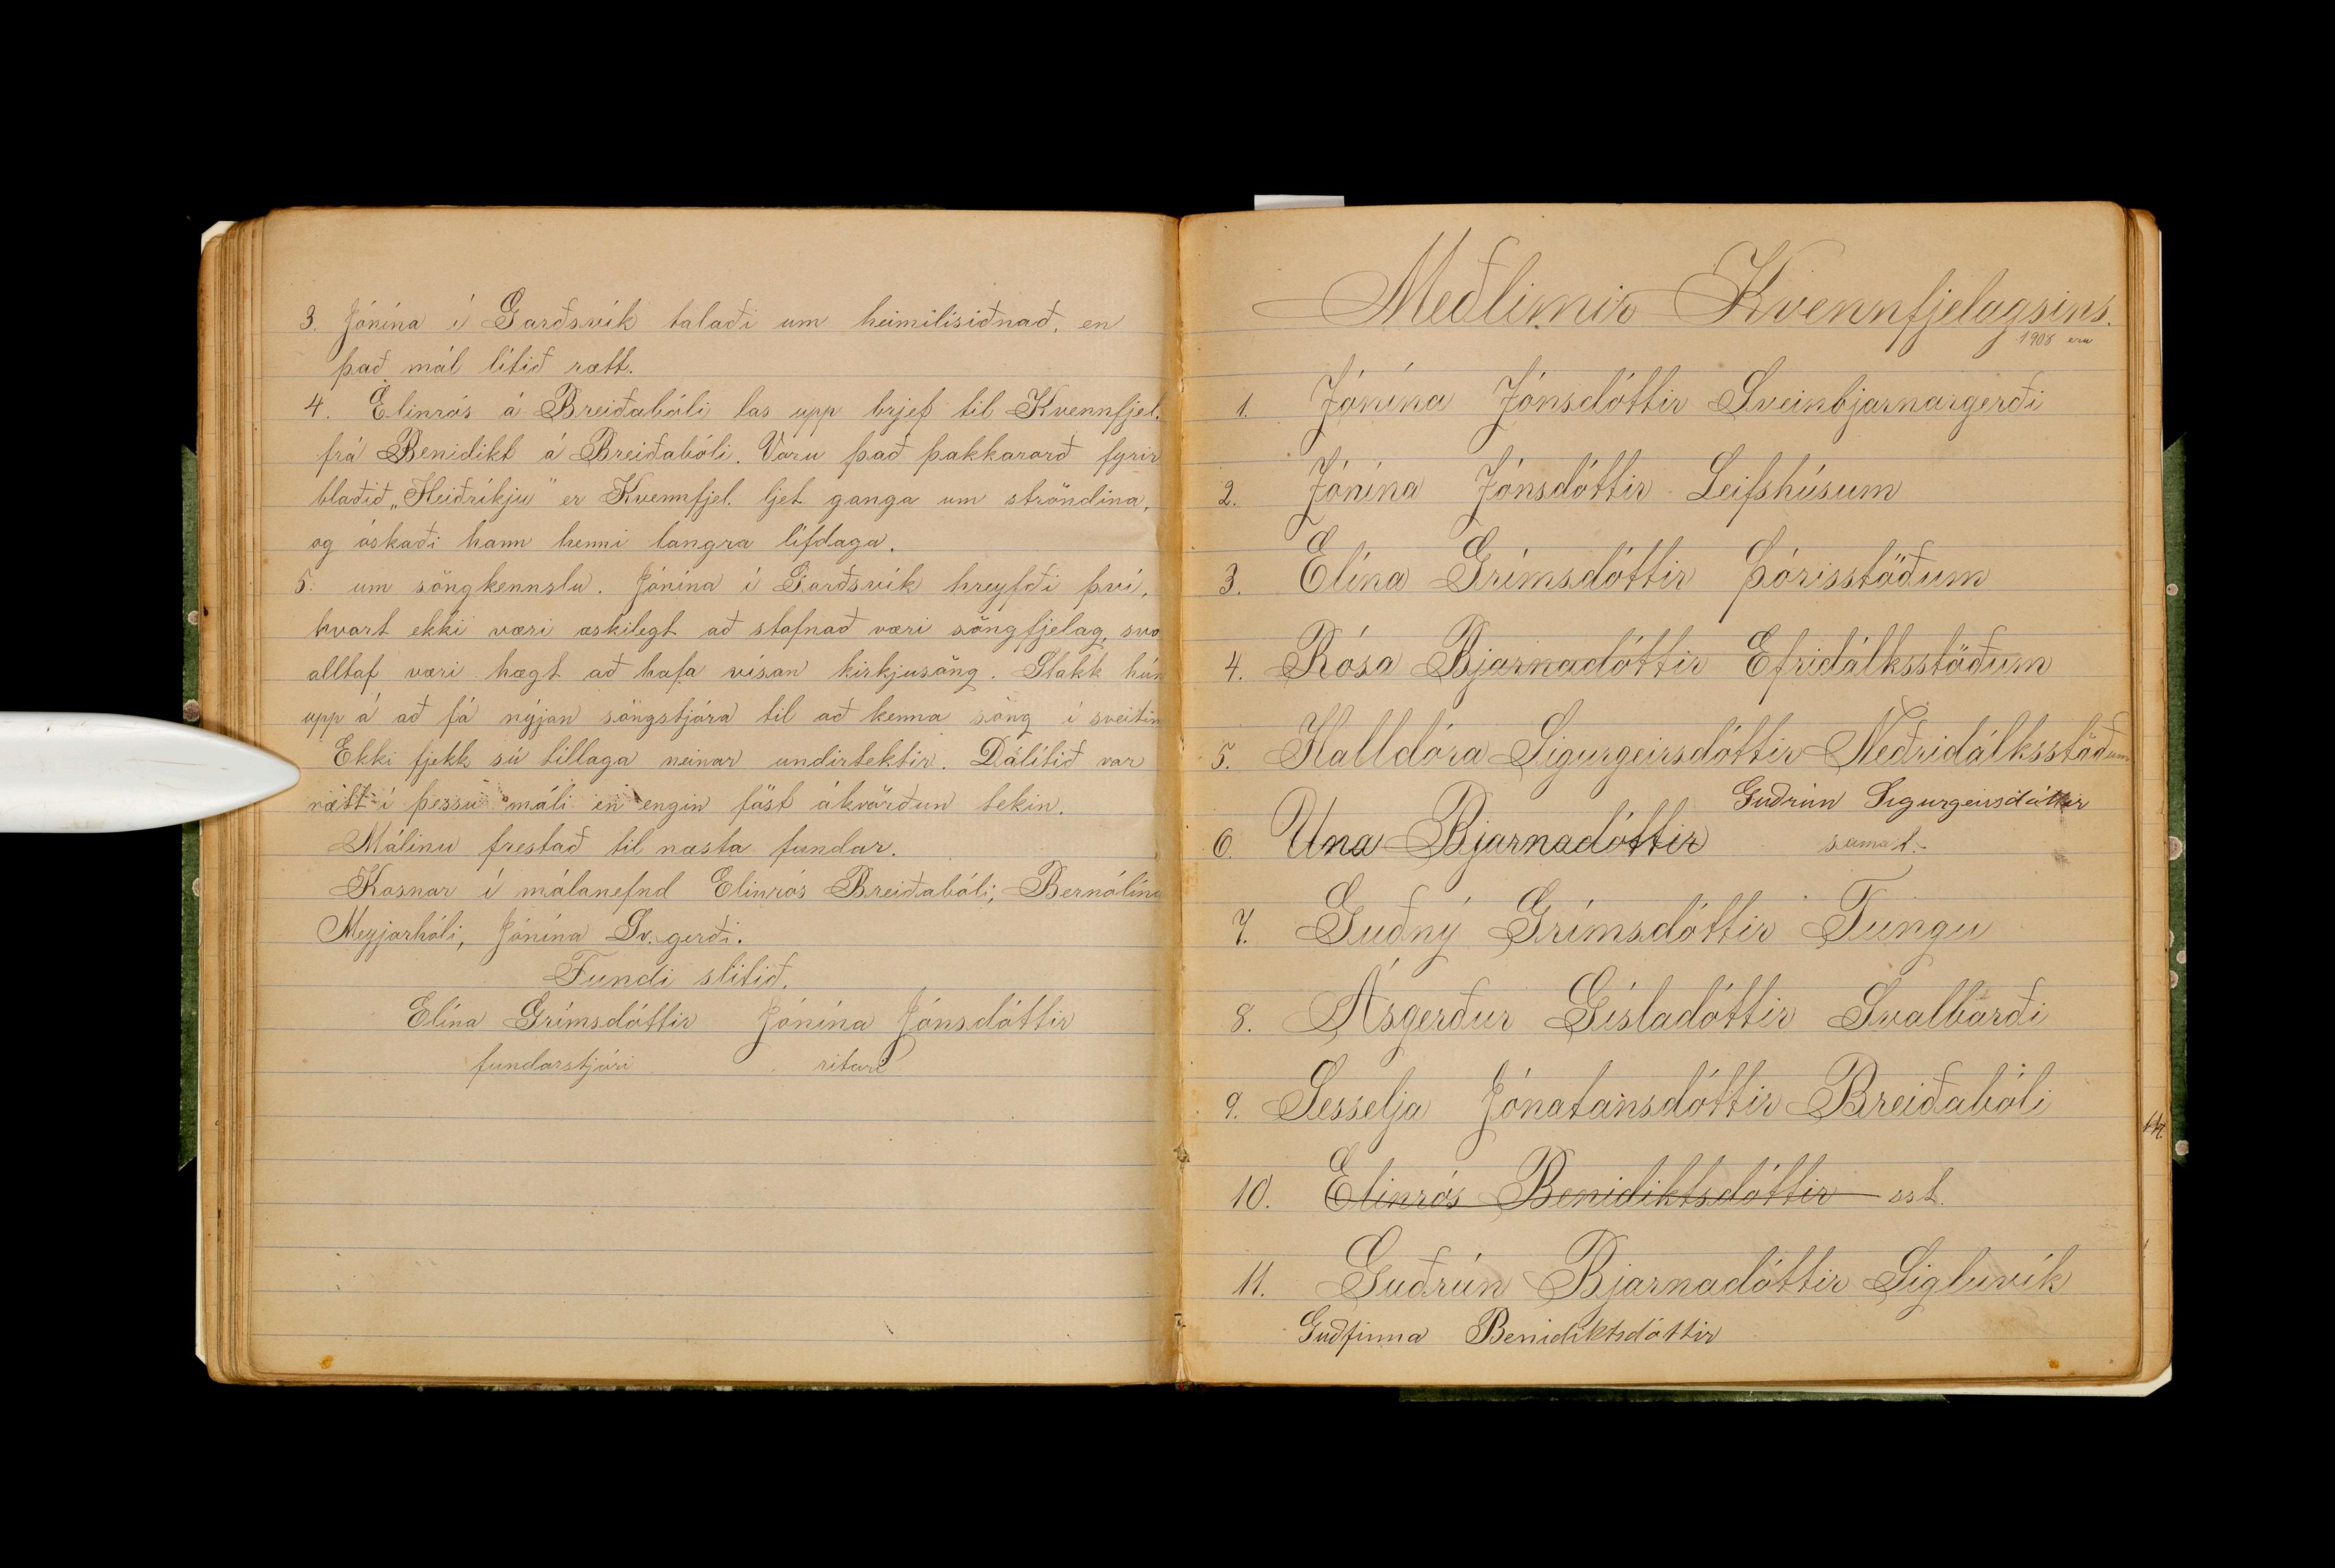 3. Jónína í Garðsvík talaði um heimilisiðnað, en
það mál lítið rætt.
4. Elinrós á Breiðabóli las upp brjef til Kvennfjel.
frá Benidikt á Breiðabóli. Voru það þakkarorð fyrir
blaðið „Heiðríkju" er Kvennfjel. ljet ganga um ströndina,
og óskaði hann henni langra lífdaga.
5. um söngkennslu. Jónína í Garðsvík hreyfði því,
hvort ekki væri æskilegt að stofnað væri söngfjelag, svo
alltaf væri hægt að hafa vísan kirkjusöng. Stakk hún
upp á að fá nýjan söngstjóra til að kenna söng í sveitin
Ekki fjekk sú tillaga neinar undirtektir. Dálítið var
rætt í þessu máli en engin föst ákvörðun tekin.
Málinu frestað til næsta fundar.
Kosnar í málanefnd Elinrós Breiðabóli, Bernólína
Meyjarhóli, Jónína Sv.gerði.
Fundi slitið.
Elína Grímsdóttir Jónína Jónsdóttir
fundarstjóri ritari
Meðlimir Kvennfjelagsins.
1908 eru
1. Jónína Jónsdóttir Sveinbjarnargerði
2. Jónína Jónsdóttir Leifshúsum
3. Elína Grímsdóttir Þórisstöðum
4. Rósa Bjarnadóttir Efridálksstöðum
5. Halldóra Sigurgeirsdóttir Neðridálksstöðum
Guðrún Sigurgeirsdóttir
6. Una Bjarnadóttir sama st.
7. Guðný Grímsdóttir Tungu
8. Ásgerður Gísladóttir Svalbarði
9. Sesselja Jónatansdóttir Breiðabóli
10. Elinrós Benidiktsdóttir sst.
11. Guðrún Bjarnadóttir Sigluvík
Guðfinna Benidiktsdóttir